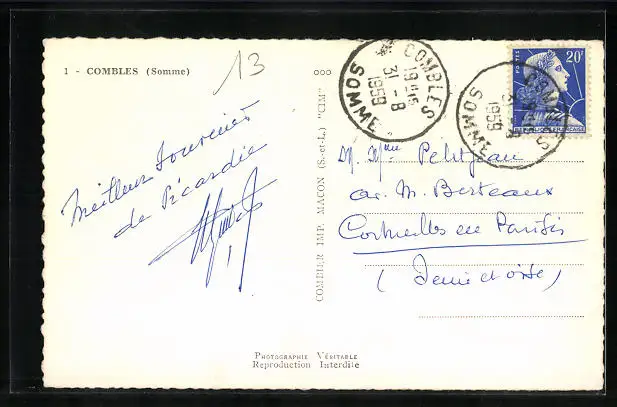 1 - COMBLES (Somme)
13
Meilleur Souvenir
de Picardie
COMBIER IMP. MACON (S.-et-L.) "CIM"
COMBLES
19 H 45
31 - 8
1959
SOMME
POSTES
20F
REPUBLIQUE FRANÇAISE
COMBLES
1959
SOMME
M. Mme Petitjean
av. M. Berteaux
Cormeilles en Parisis
(Seine et Oise)
PHOTOGRAPHIE VÉRITABLE
Reproduction Interdite